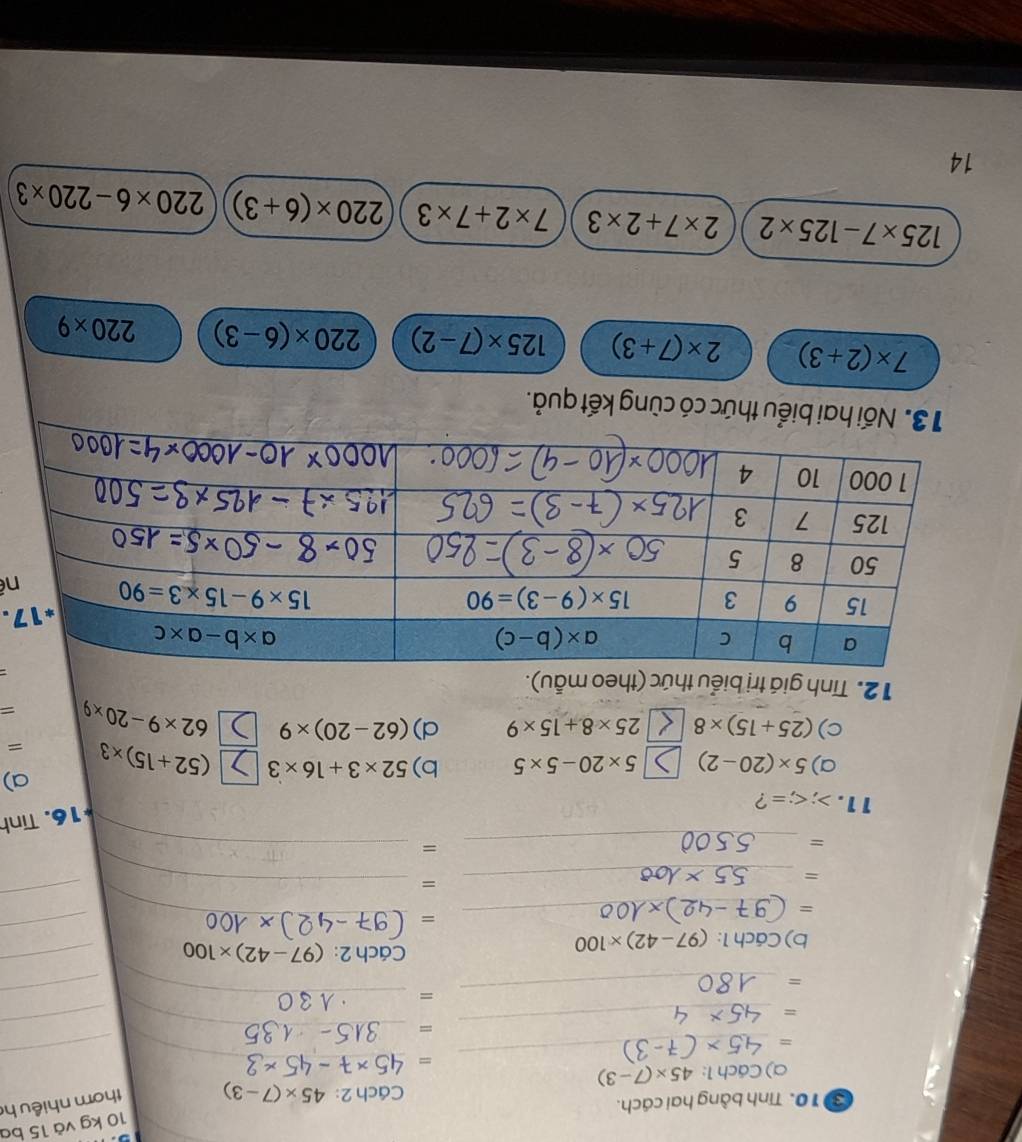 10. Tính bằng hai cách.
a) Cách 1: 45 × (7 – 3)
= 45 × (7 - 3)
= 45 × 4
= 180
Cách 2: 45 × (7 – 3)
= 45 × 7 – 45 × 3
= 315 - 135
= 130
b) Cách 1: (97 – 42) × 100
= (97 - 42) × 100
= 55 × 100
= 5500
Cách 2: (97 – 42) × 100
= (97 - 42) × 100
=
=
11. >; <; = ?
a) 5 × (20 – 2) > 5 × 20 – 5 × 5
b) 52 × 3 + 16 × 3 > (52 + 15) × 3
c) (25 + 15) × 8 < 25 × 8 + 15 × 9
d) (62 – 20) × 9 > 62 × 9 – 20 × 9
12. Tính giá trị biểu thức (theo mẫu).
a b c a × (b – c) a × b – a × c
15 9 3 15 × (9 – 3) = 90 15 × 9 – 15 × 3 = 90
50 8 5 50 × (8 - 3) = 250 50 × 8 - 50 × 5 = 150
125 7 3 125 × (7 - 3) = 625 125 × 7 - 125 × 3 = 500
1 000 10 4 1000 × (10 - 4) = 6000. 1000 × 10 - 1000 × 4 = 1000
13. Nối hai biểu thức có cùng kết quả.
7 × (2 + 3) 2 × (7 + 3) 125 × (7 – 2) 220 × (6 – 3) 220 × 9
125 × 7 – 125 × 2 2 × 7 + 2 × 3 7 × 2 + 7 × 3 220 × (6 + 3) 220 × 6 – 220 × 3
14
10 kg và 15 ba
thơm nhiêu
*16. Tính
a)
=
=
=
*17.